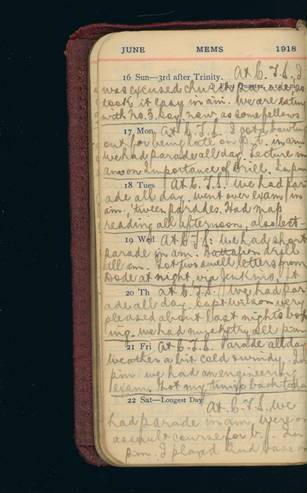 JUNE MEMS 1918
16 Sun—3rd after Trinity. At C.T.S. I
was excused church parade so
took it easy in am. We are eating
with no. 3 Coy. now as some fellows
17 Mon At C.T.S. I got a
out for being late on P.T. in am
we had parade all day. Lecture in
am on Importance of Drill.
18 Tues At C.T.S. We had par
ade all day. went over exam in
am. 'tween parades. Had map
reading all afternoon, also lect
19 Wed At C.T.S. We had short
parade in am. Battalion drill
all am. Got two swell letters from
at night, via
20 Th At C.T.S. We had par
ade all day. Capt. Wilson were
pleased about last nights box
ing. We had musketry all pm
21 Fri At C.T.S. Parade all day
Weather a bit cold & windy. In
pm. we had an engineering
exam. Got my back today
22 Sat—Longest Day At C.T.S. We
had parade in am. Were on
assault course for
pm. I played